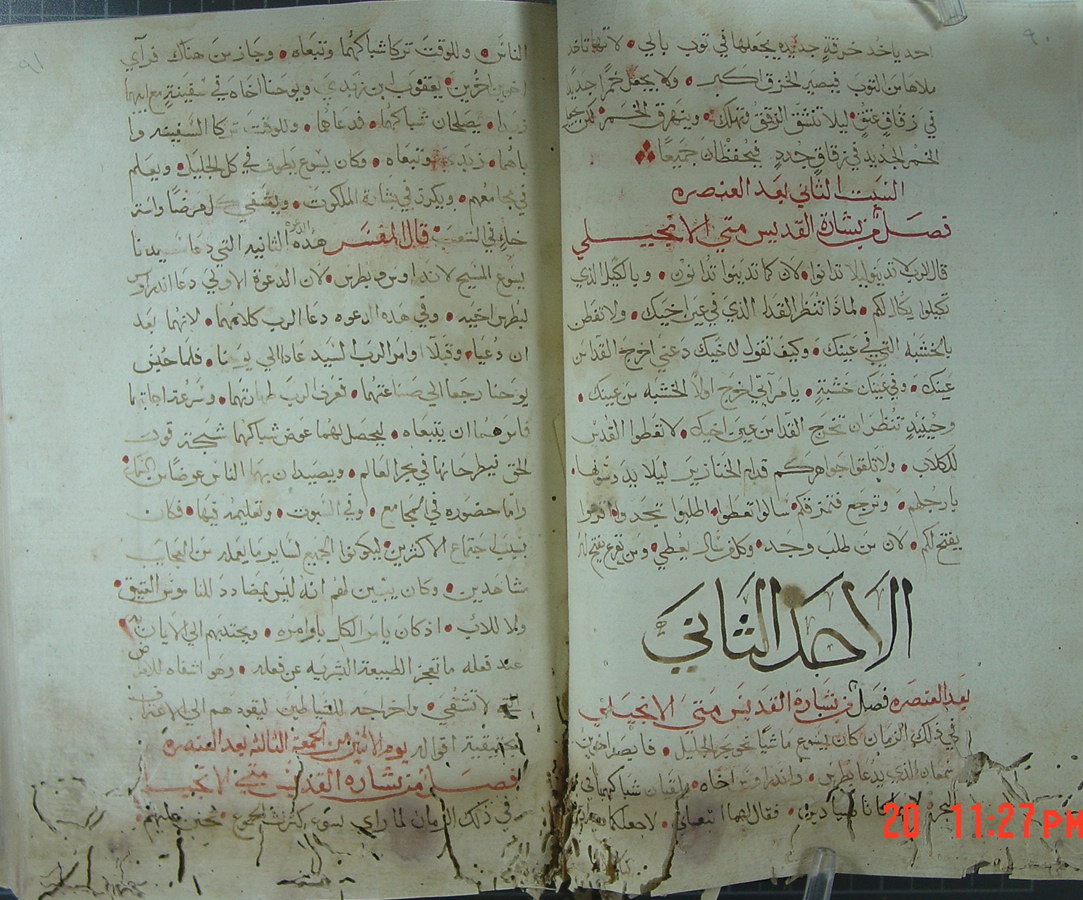 ٩٠
احد ياخد خرقة جديده يجعلها في ثوب بالي • لانها تاخد
ملاها من الثوب فيصير الخزق اكبر • ولا يجعل خمرًا جديدًا
في زقاق عتق • ليلا تنشق الزقق وتهلك • ويتهرق الخمر • لكن يجعل
الخمر الجديد في زقاق جدد فيحفظان جميعًا
السبت الثاني بعد العنصره
فصل من بشارة القديس متي الانجيلي
قال الرب لا تدينوا ليلا تدانوا • لان كما تدينوا تدانون • وبالكيل الذي
تكيلوا يكال لكم • لماذا تنظر القدا الذي في عين اخيك • ولا تفطن
بالخشبه التي في عينك • وكيف تقول لاخيك دعني اخرج القدا من
عينك • وفي عينك خشبة • يا مرآتي اخرج اولًا الخشبه من عينك •
وحينيذ تنظر ان تخرج القدا من عين اخيك • لا تعطوا القدس
للكلاب • ولا تلقوا جواهركم قدام الخنازير ليلا يدوسوها
بارجلهم • وترجع فتمزقكم • سالوا تعطوا • اطلبوا تجدوا • اقرعوا
يفتح لكم • لان من طلب وجد • وكل من سال يعطي • ومن يقرع يفتح له
الاحد الثاني
بعد العنصره فصل من بشارة القديس متي الانجيلي
في ذلك الزمان كان يسوع ماشيًا نحو بحر الجليل • فابصر اخوين
سمعان الذي يدعا بطرس • واندراوس اخاه • يلقيان شباكهما في
البحر لانهما كانا صيادين • فقال لهما اتبعاني • لاجعلكما
20 11:27 PM
٩١
الناس • وللوقت تركا شباكهما وتبعاه • وجاز من هناك فرآي
اخوين اخرين • يعقوب ابن زبدي ويوحنا اخاه في سفينة مع ابيهما
زبدا • يصلحان شباكهما • فدعاهما • وللوقت تركا السفينه وا
باهما • زبدي وتبعاه • وكان يسوع يطوف في كل الجليل • ويعلم
في مجامعهم • ويكرز في بشارة الملكوت • ويشفي كل مرض واستر
خاء في الشعب قال المفسر هذه الدعوه الثانيه التي دعا سيدنا
يسوع المسيح لاندراوس وبطرس • لان الدعوة الاولي دعا اندراوس
لبطرس اخيه • وفي هده الدعوه دعا الرب كلاهما • لانهما بعد
ان دعيا • وقبلا اوامر الرب السيد عادا الي يوحنا • فلما حبس
يوحنا رجعا الي صناعتهما • فعرف الرب طهارتهما • وسرعة اجابتهما
فامرهما ان يتبعاه • ليجعل لهما عوض شباكهما شبكة قول
الحق فيطرحانها في بحر العالم • ويصيدان بهما الناس عوضًا من السمك
واما حضوره في المجامع • وفي السبوت • وتعليمه فيها • فكان
بسبب اجتماع الاكثرين ليكونوا الجميع لساير ما يعمله من العجايب
مشاهدين • وكان يبين لهم انه ليس بمضادد للناموس العتيق •
ولا للاب • اذ كان يامر الكل باوامره • ويجتدبهم الي الايمان به
عند فعله ما تعجز الطبيعة البشريه عن فعله • وهو اشفاه للامراض
التي لا تشفي • واخراجه للشياطين ليقودهم الي الاعتراف
بحقيقية اقواله يوم الاثنين من الجمعة الثالثه بعد العنصره
فصل من بشارة القديس متي الانجيلي
في ذلك الزمان لما راي يسوع كثرت الجموع • تحنن عليهم •